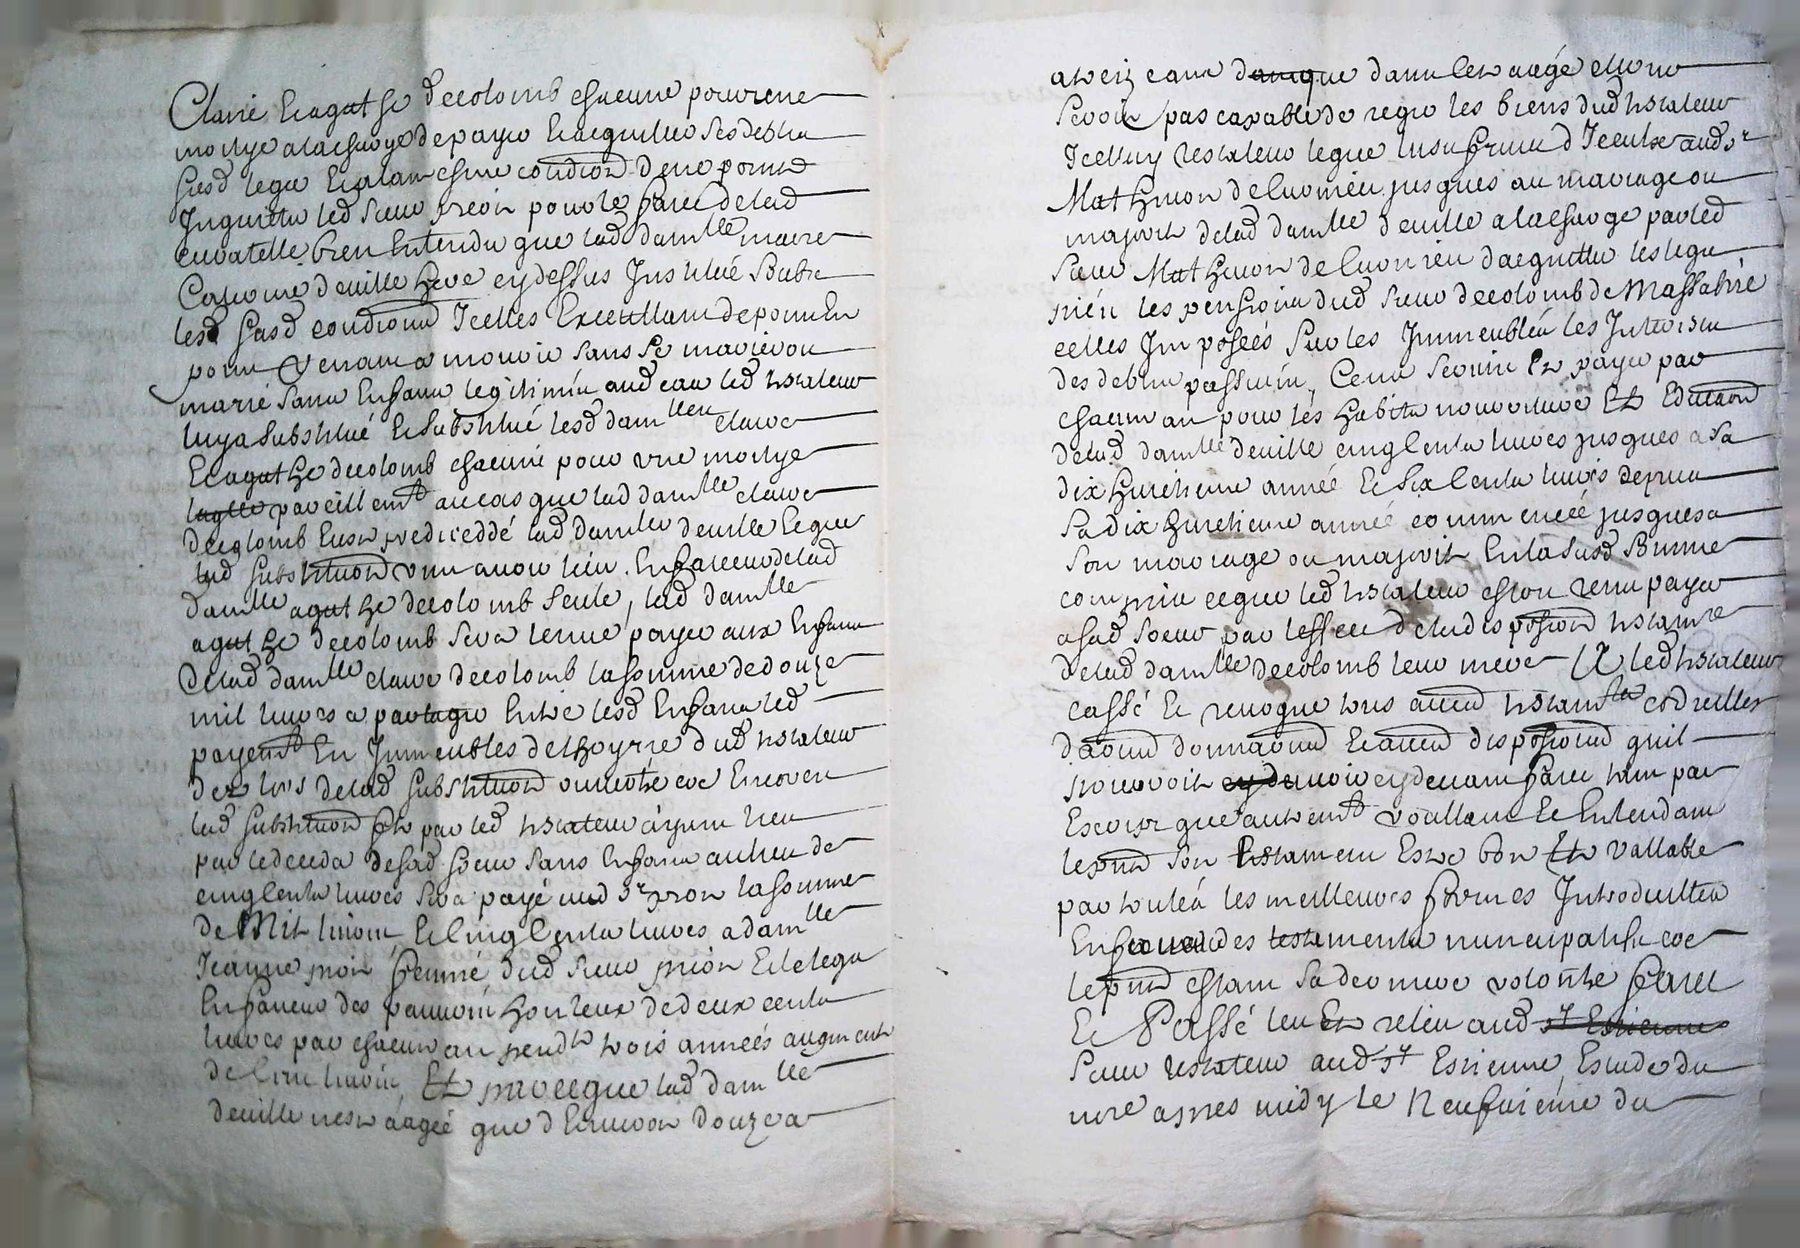 Claire Et agathe decolomb chacune pour une
moitye a la charge de payer Et acquitter ses debtes
susd legz Et a la mesme condition de ne point
Inquietter led sieur prion pour le faict de lad
curatelle bien Entendu que lad damlle marie
Catherine deuille here cy dessus Instituée soubz
lesd susd conditions Icelles Excecuttant de point En
point Venant a mourir sans se marier ou
marié sans Enfans legitimes aud cas led testateur
luy a substitué Et substitue lesd damlles claire
Et agathe decolomb chacune pour une moitye
pareillemt au cas que lad damlle claire
decolomb Eust predeceddé lad damlle deuille Et que
lad substitution vint avoir lieu En faveur de lad
damlle agathe decolomb seule, lad damlle
agathe decolomb sera tenue payer aux Enfans
de lad damlle claire decolomb la somme de douze
mil livres a partager Entre lesd Enfans led
payemt En Immeubles de lhoyrie dud testateur
dez lors de lad substitution ouverte ce Encore
lad substitution fte par led testateur ayant lieu
par le deceds de sad soeur sans Enfans au lieu de
cinq cents livres sera payé aud sr prion la somme
de Mil livres, Et cinq cents livres a damlle
Jeanne prion femme dud sieur prion Et le legz
En faveur des pauvres honteux de deux cents
livres par chacun an pendt trois années augmenté
de cent livres, Et parce que lad damlle
deuille nest aagée que d Environ douze a
treize ans dans cet aagé elle ne
seroit pas capable de regir les biens dud testateur
Icelluy testateur legue lusufruict d Iceulx aud sr
Mathieu de lavonieu jusques au mariage ou
majorité de lad damlle deuille a la charge par led
sieur Mathieu de lavonieu dacquitter les legz
pies les pensions dud sieur decolomb de Massabré
celles Imposées sur les Immeubles les Interests
des debtes passives, Cent seront Et payer par
chacun an pour les habits nourriture Et Education
de lad damlle deuille cinq cents livres jusques a sa
dix huictieme année Et six cents livres depuis
sa dix huictieme année commencée jusques a
son mariage ou majorité En la susd somme
compris ce que led testateur estoit tenu payer
a sad soeur par leffect de la disposition testamre
de lad damlle decolomb leur mere Et led testateur
cassé Et revoque tous autres testamts codicilles
donnations Et autres dispositions quil
pourroit cy devant faict tant par
Escript que autremt voullant Et Entendant
le pnt son testament Estre bon Et vallable
par toutes les meilleures formes Introduittes
En faveur des testaments nuncupatifs ce
le pnt estant sa derniere volonte faict
Et Passé leu Et releu aud st Estienne
sieur testateur aud st Estienne Estude du
nre apres midy Le Neufvieme du